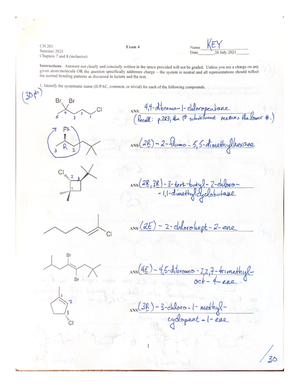 CH 201
Summer 2021
Chapters 7 and 8 (inclusive)
Exam 4
Name KEY
Date 26 July 2021
Instructions: Answers not clearly and concisely written in the space provided will not be graded. Unless you see a charge on any given atom/molecule OR the question specifically addresses charge – the system is neutral and all representations should reflect the normal bonding patterns as discussed in lecture and the text.
Identify the systematic name (IUPAC, common, or trivial) for each of the following compounds.
(30 pts)
Br Br
Cl
ANS 4,4-dibromo-1-chloropentane
ANS (2R)-2-fluoro-5,5-dimethylhexane
R
Cl
ANS (2R,3R)-3-tert-butyl-2-chloro-
-1,1-dimethylcyclobutane
Cl
ANS (2E)-2-chlorohept-2-ene
Br
Br
ANS (4E)-4,5-dibromo-2,2,7-trimethyl-
oct-4-ene
Cl
ANS (3R)-3-chloro-1-methyl-
cyclopent-1-ene
1
/30